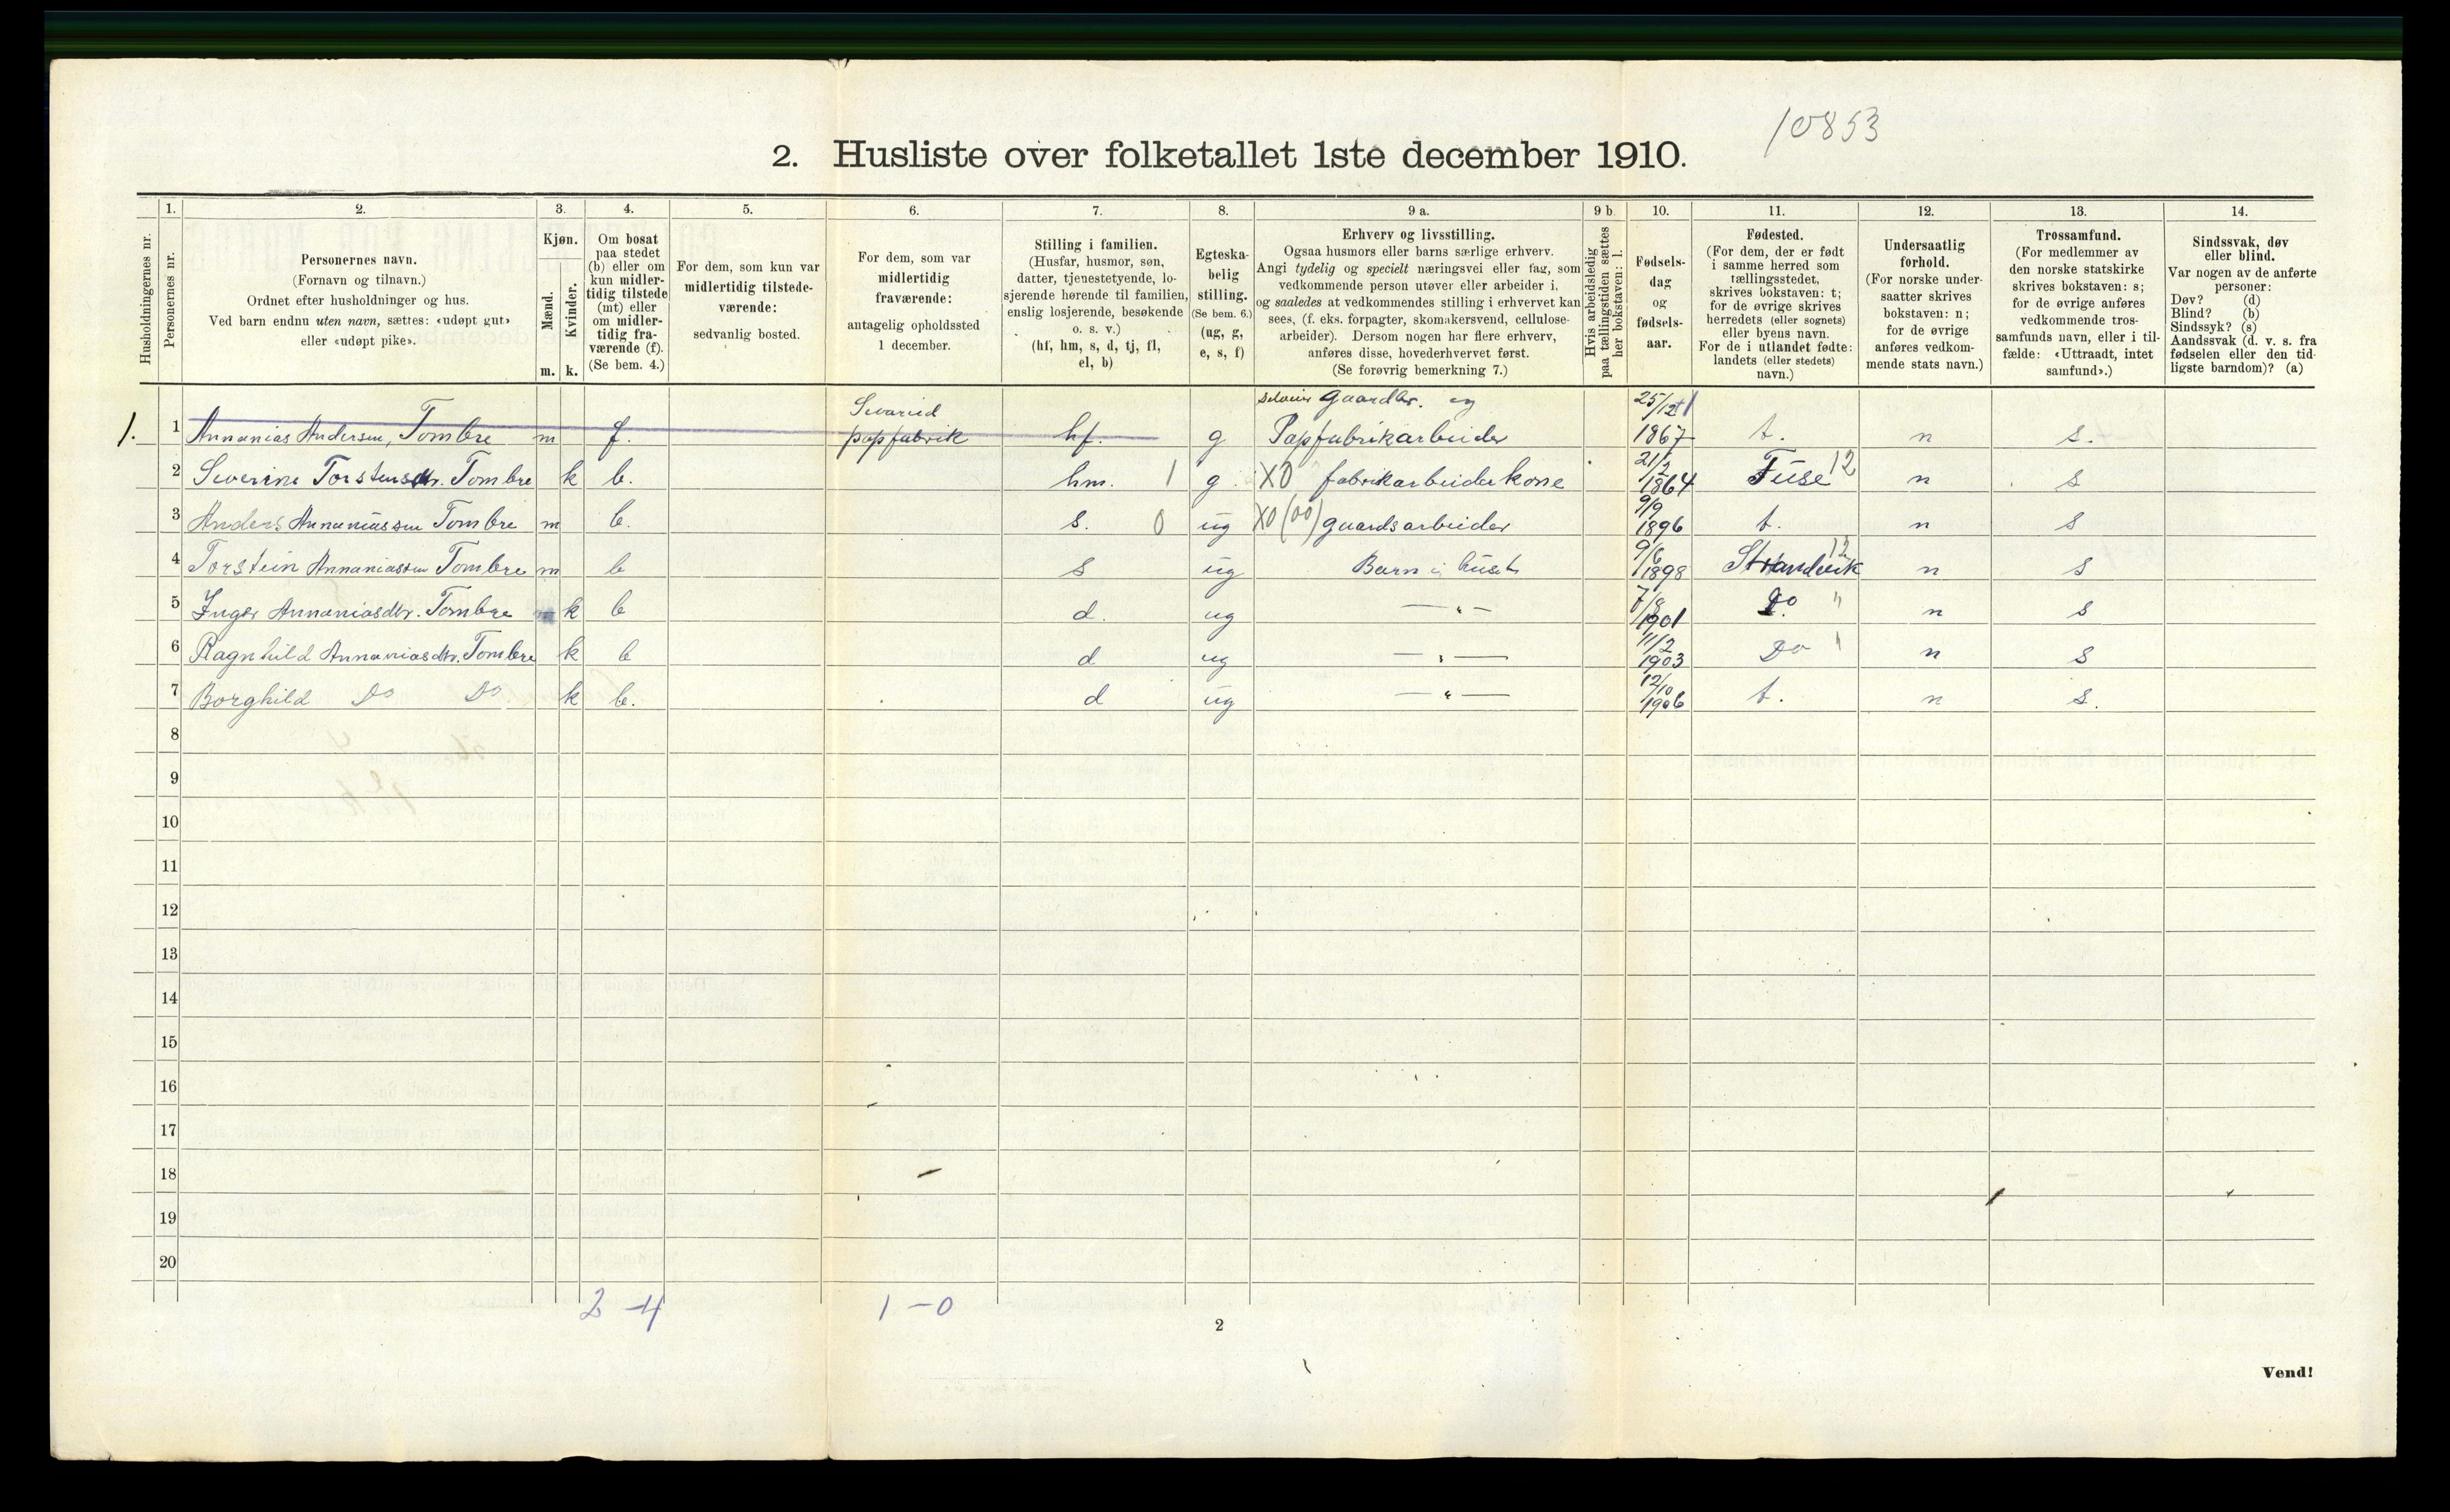 10853
2. Husliste over folketallet 1ste december 1910.
Husholdningernes nr.
1. Personernes nr.
2. Personernes navn.
(Fornavn og tilnavn.)
Ordnet efter husholdninger og hus.
Ved barn endnu uten navn, sættes: «udøpt gut»
eller «udøpt pike».
3. Kjøn.
Mænd. m.
Kvinder. k.
4. Om bosat
paa stedet
(b) eller om
kun midler-
tidig tilstede
(mt) eller
om midler-
tidig fra-
værende (f).
(Se bem. 4.)
5. For dem, som kun var
midlertidig tilstede-
værende:
sedvanlig bosted.
6. For dem, som var
midlertidig
fraværende:
antagelig opholdssted
1 december.
7. Stilling i familien.
(Husfar, husmor, søn,
datter, tjenestetyende, lo-
sjerende hørende til familien,
enslig losjerende, besøkende
o. s. v.)
(hf, hm, s, d, tj, fl,
el, b)
8. Egteska-
belig
stilling.
(Se bem. 6.)
(ug, g,
e, s, f)
9 a. Erhverv og livsstilling.
Ogsaa husmors eller barns særlige erhverv.
Angi tydelig og specielt næringsvei eller fag, som
vedkommende person utøver eller arbeider i,
og saaledes at vedkommendes stilling i erhvervet kan
sees, (f. eks. forpagter, skomakersvend, cellulose-
arbeider). Dersom nogen har flere erhverv,
anføres disse, hovederhvervet først.
(Se forøvrig bemerkning 7.)
9 b Hvis arbeidsledig
paa tællingstiden sættes
her bokstaven: l.
10. Fødsels-
dag
og
fødsels-
aar.
11. Fødested.
(For dem, der er født
i samme herred som
tællingsstedet,
skrives bokstaven: t;
for de øvrige skrives
herredets (eller sognets)
eller byens navn.
For de i utlandet fødte:
landets (eller stedets)
navn.)
12. Undersaatlig
forhold.
(For norske under-
saatter skrives
bokstaven: n;
for de øvrige
anføres vedkom-
mende stats navn.)
13. Trossamfund.
(For medlemmer av
den norske statskirke
skrives bokstaven: s;
for de øvrige anføres
vedkommende tros-
samfunds navn, eller i til-
fælde: «Uttraadt, intet
samfund».)
14. Sindssvak, døv
eller blind.
Var nogen av de anførte
personer:
Døv? (d)
Blind? (b)
Sindssyk? (s)
Aandssvak (d. v. s. fra
fødselen eller den tid-
ligste barndom)? (a)
Svarved gaardbr. og 25/12
1. 1 Annanias Andersen, Tombre m f. papfabrik hf. g Papfabrikarbeider 1867 t. n s.
2 Severine Torstensdtr. Tombre k b. hm. 1 g X0 fabrikarbeiderkone 21/2 1864 Fuse 12 n s
3 Anders Annaniassen Tombre m b. s. 0 ug X0 (00) gaardsarbeider 9/9 1896 t. n s
4 Torstein Annaniassen Tombre m b s ug Barn i huset 9/6 1898 Strandvik 12 n s
5 Inger Annaniasdtr. Tombre k b d. ug — " — 7/8 1901 Do " n s
6 Ragnhild Annaniasdtr. Tombre k b d ug — " — 11/2 1903 Do " n s
7 Borghild Do Do k b. d ug — " — 12/10 1906 t. n s.
8
9
10
11
12
13
14
15
16
17
18
19
20
2 - 4 1 - 0
2
Vend!